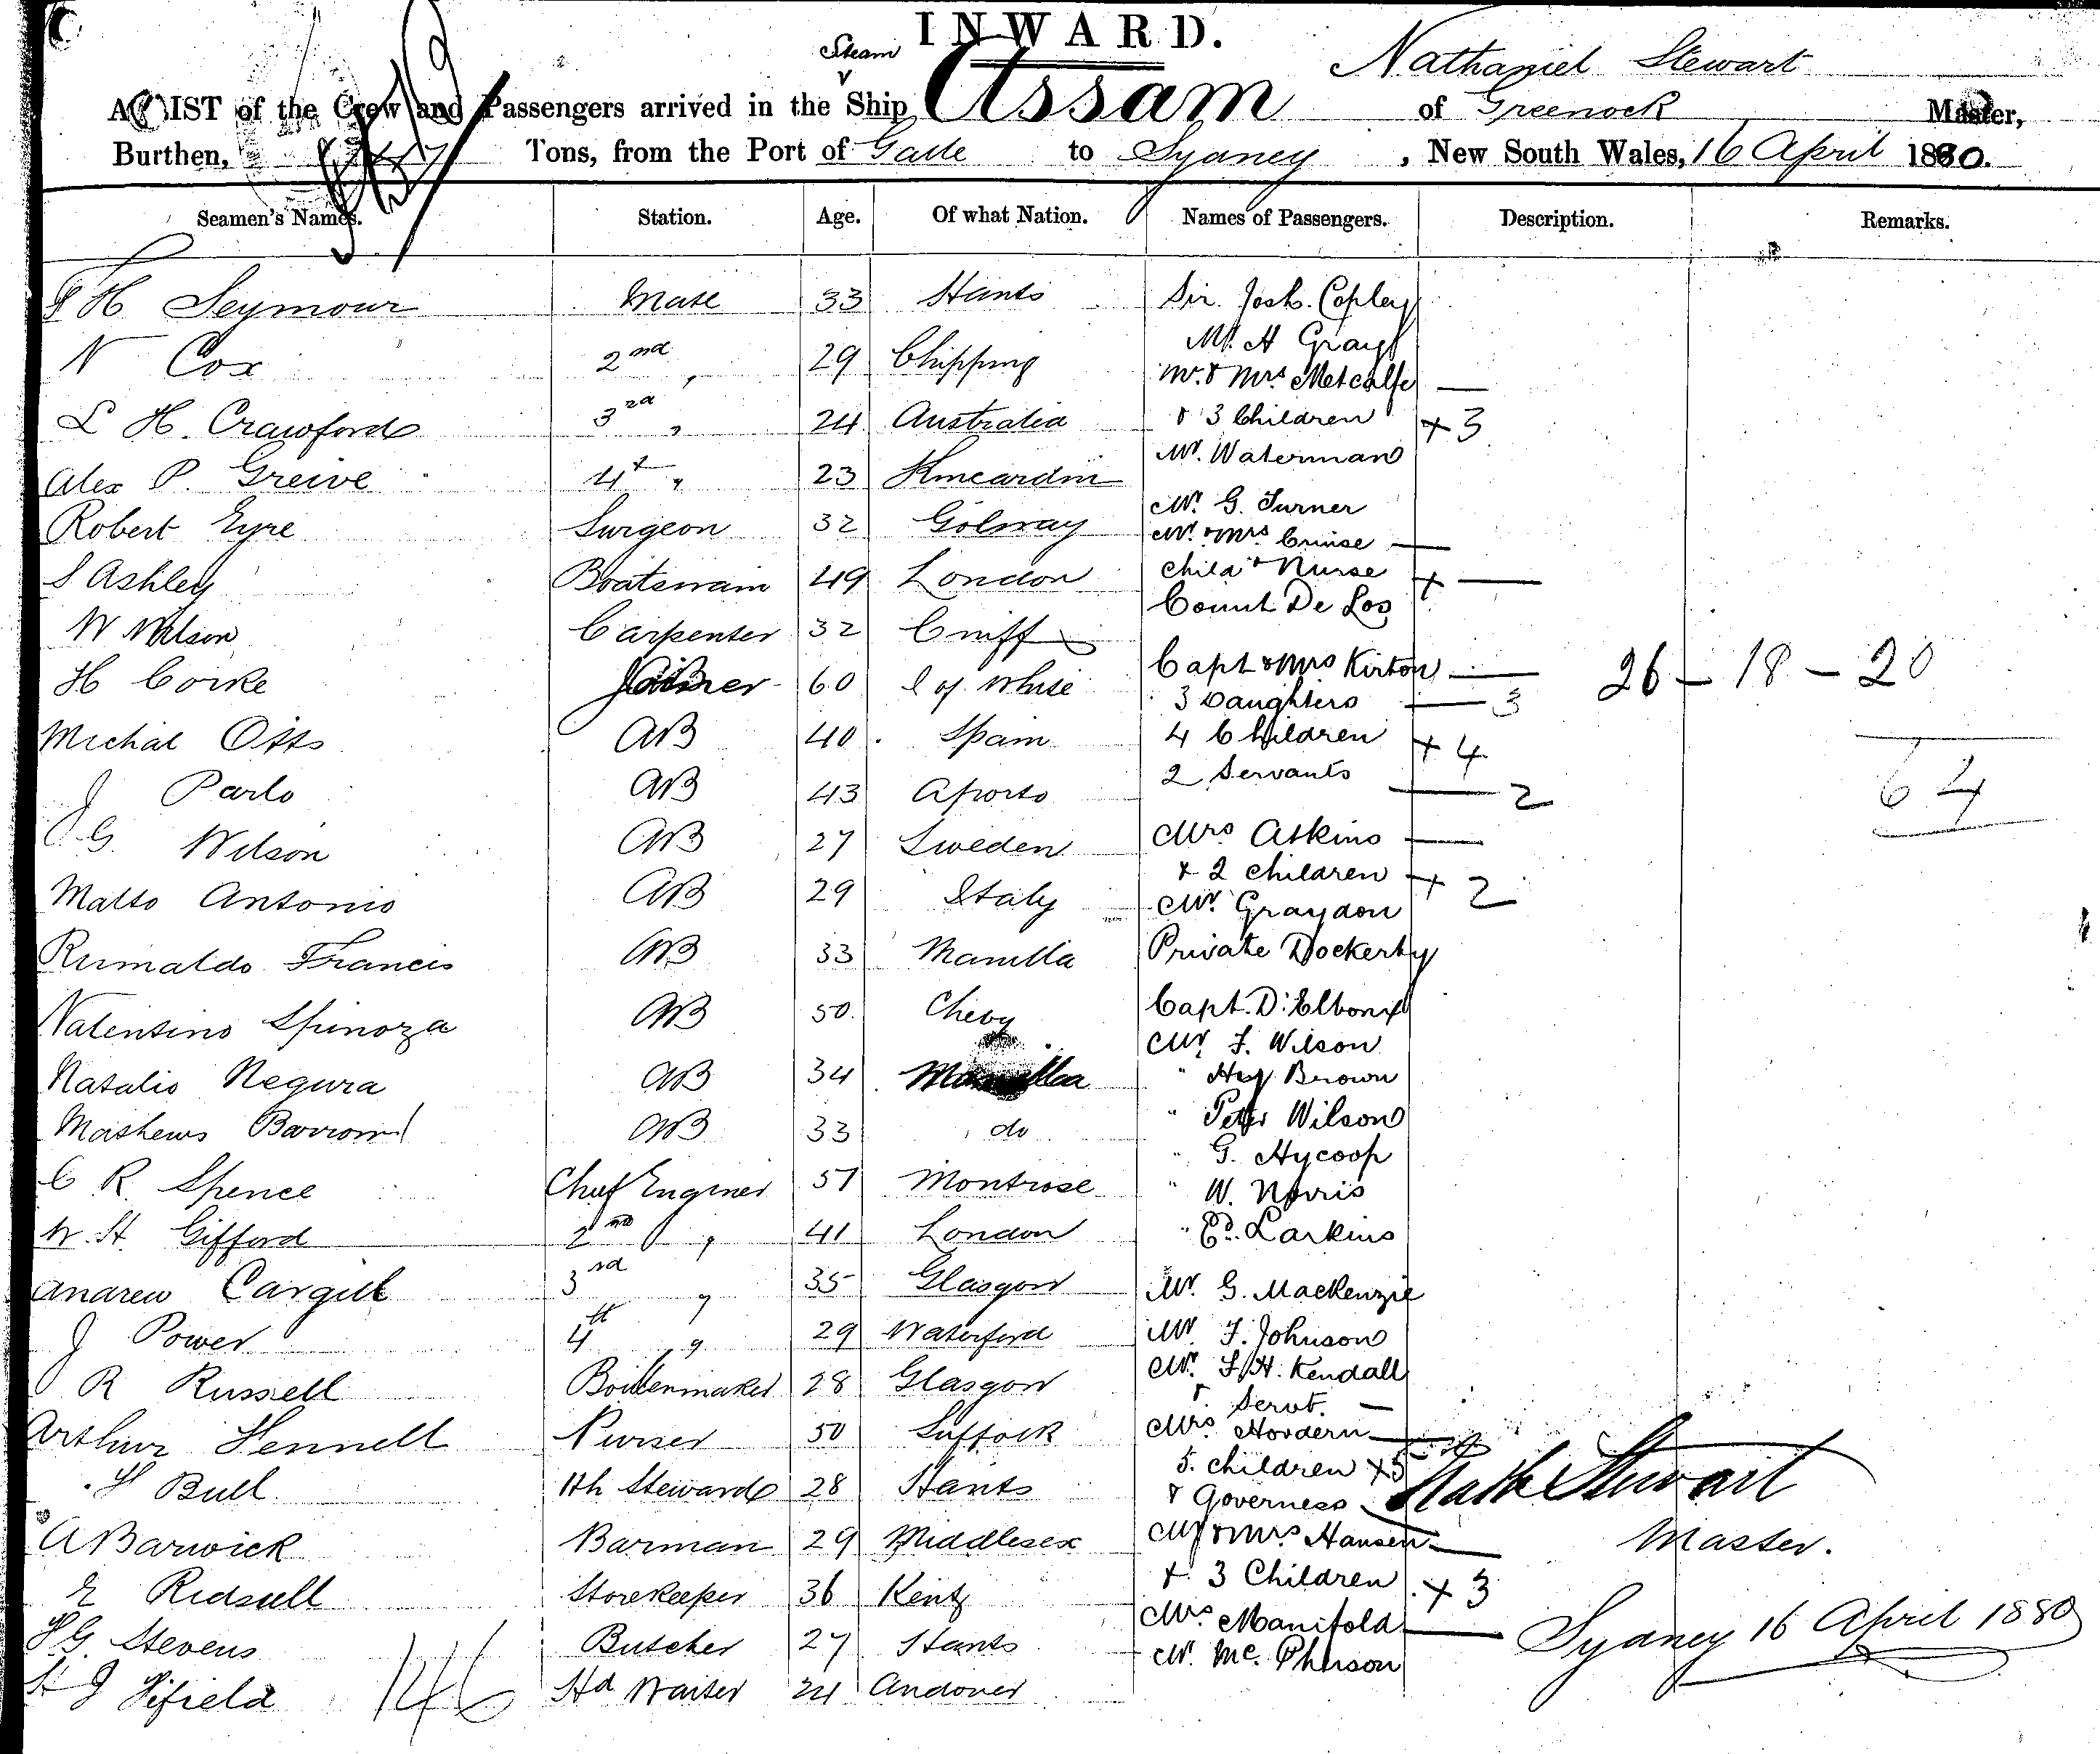 INWARD.
Steam
Nathaniel Stewart
A LIST of the Crew and Passengers arrived in the Ship Assam of Greenock Master,
Burthen, Tons, from the Port of Galle to Sydney, New South Wales, 16 April 1880.
Seamen's Names. Station. Age. Of what Nation. Names of Passengers. Description. Remarks.
H Seymour Mate 33 Hants
N Cox 2nd " 29 Chipping
L H. Crawford 3rd " 24 Australia
Alex P. Greive 4t " 23 Kincardin
Robert Eyre Surgeon 32 Golway
S Ashley Boatswain 49 London
W Wilson Carpenter 32 Criff
H Corke 60 I of White
Michal Otts AB 40 Spain
J Parlo AB 43 Aporto
G. Wilson AB 27 Sweden
Matto Antonio AB 29 Italy
Rumaldo Francis AB 33 Manilla
Valentino Spinoza AB 50 Cheby
Natalio Negura AB 34 Manilla
Mathews Barrom AB 33 do
C R. Spence Chief Enginer 57 Montrose
W. H. Gifford 2nd " 41 London
Andrew Cargill 3rd " 35 Glasgow
J Power 4th " 29 Waterford
R Russell Boilermaker 28 Glasgow
Arthur Hennell Purser 50 Suffolk
H Bull Hd Steward 28 Hants
A Barwick Barman 29 Middlesex
E Ridsdell Storekeeper 36 Kent
H G. Stevens Butcher 27 Hants
J Fifield Hd Waiter 24 Andover
146
Sir. Josh. Copley
Mr. H Gray
Mr. & Mrs Metcalfe —
& 3 Children + 3
Mr. Waterman
Mr. G. Turner
Mr. & Mrs Cruise —
Child & Nurse + —
Count De Los
Capt & Mrs Kirton —
3 Daughters — 3
4 Children + 4
2 Servants — 2
Mrs Askins —
& 2 Children + 2
Mr. Graydon
Private Dockerty
Capt. D'Elboux
Mr F. Wilson
" Hy Brown
" Peter Wilson
" G. Hycoop
" W. Norris
" Ed. Larkins
Mr. G. Mackenzie
Mr F. Johnson
Mr. F. H. Kendall
& Servt. —
Mrs. Hordern —
5. Children + 5
& Governess —
Mr & Mrs Hansen —
& 3 Children + 3
Mrs Manifold —
Mr. Mc. Pherson
26 – 18 – 20
64
Nath Stewart
Master.
Sydney 16 April 1880